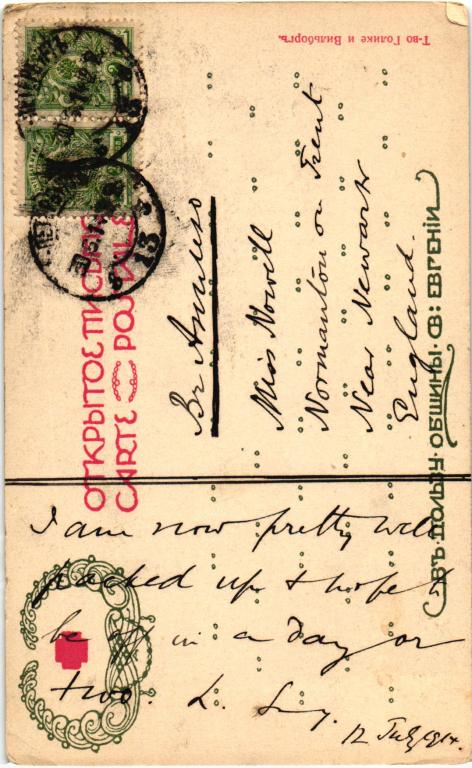 ОТКРЫТОЕ ПИСЬМО
CARTE POSTALE
Въ Англию
Miss Nowell
Normanton on Trent
Near Newark
England
ВЪ ПОЛЬЗУ ОБЩИНЫ СВ: ЕВГЕНІИ
Т-во Голике и Вильборгъ.
I am now pretty well
packed up & hope to
be off in a day or
two. L.
12 July 1914.